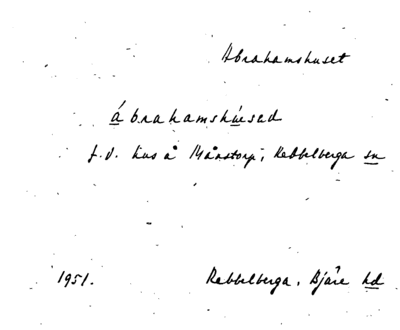 Abrahamshuset
ábrahamshúsad
f.d. hus å Månstorp, Rebbelberga sn
1951. Rebbelberga, Bjäre hd